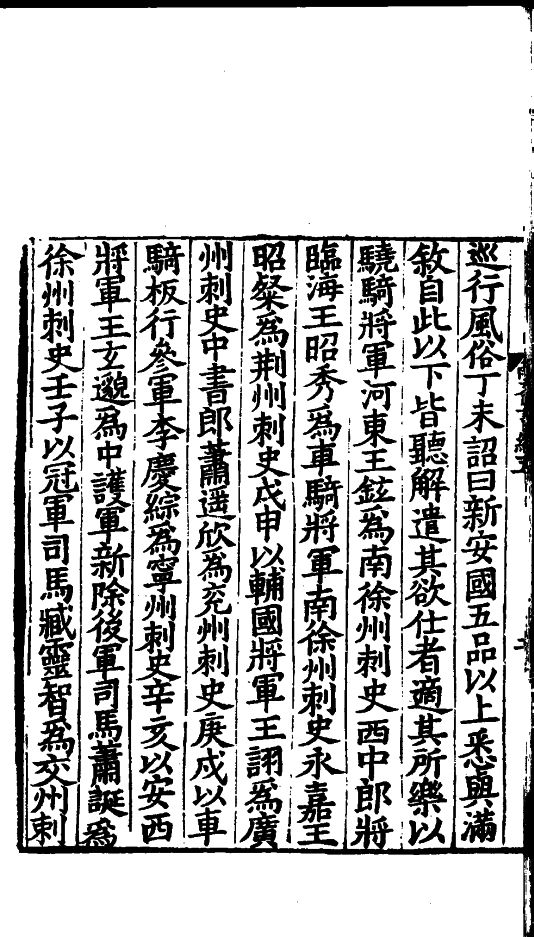 巡行風俗丁未詔曰新安國五品以上悉與滿
敘自此以下皆聽解遣其欲仕者適其所樂以
驍騎將軍河東王鉉爲南徐州刺史西中郎將
臨海王昭秀爲車騎將軍南徐州刺史永嘉王
昭粲爲荆州刺史戊申以輔國將軍王詡爲廣
州刺史中書郎蕭遥欣爲兖州刺史庚戌以車
騎板行參軍李慶綜爲寧州刺史辛亥以安西
將軍王玄邈爲中護軍新除後軍司馬蕭誕爲
徐州刺史壬子以冠軍司馬臧靈智爲交州刺